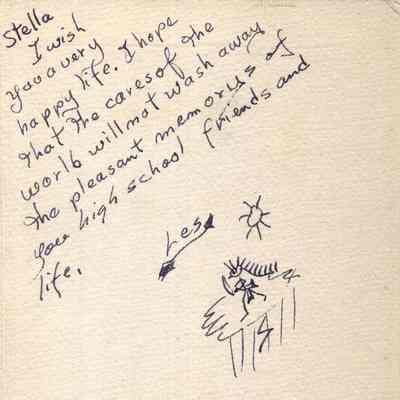 Stella
I wish
you a very
happy life. I hope
that the cares of the
world will not wash away
the pleasant memorys of
you high school friends and
life.
Les